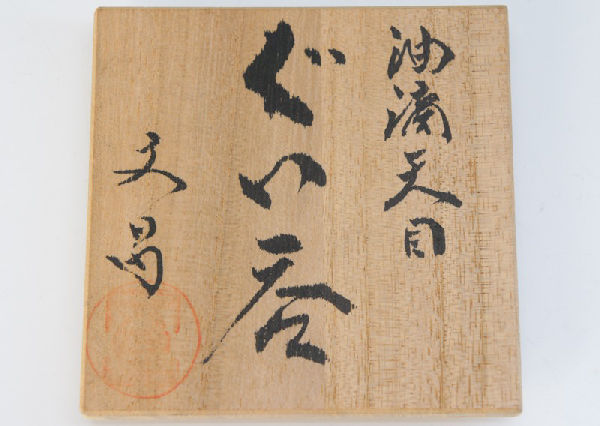 油滴天目
ぐい呑
文昌